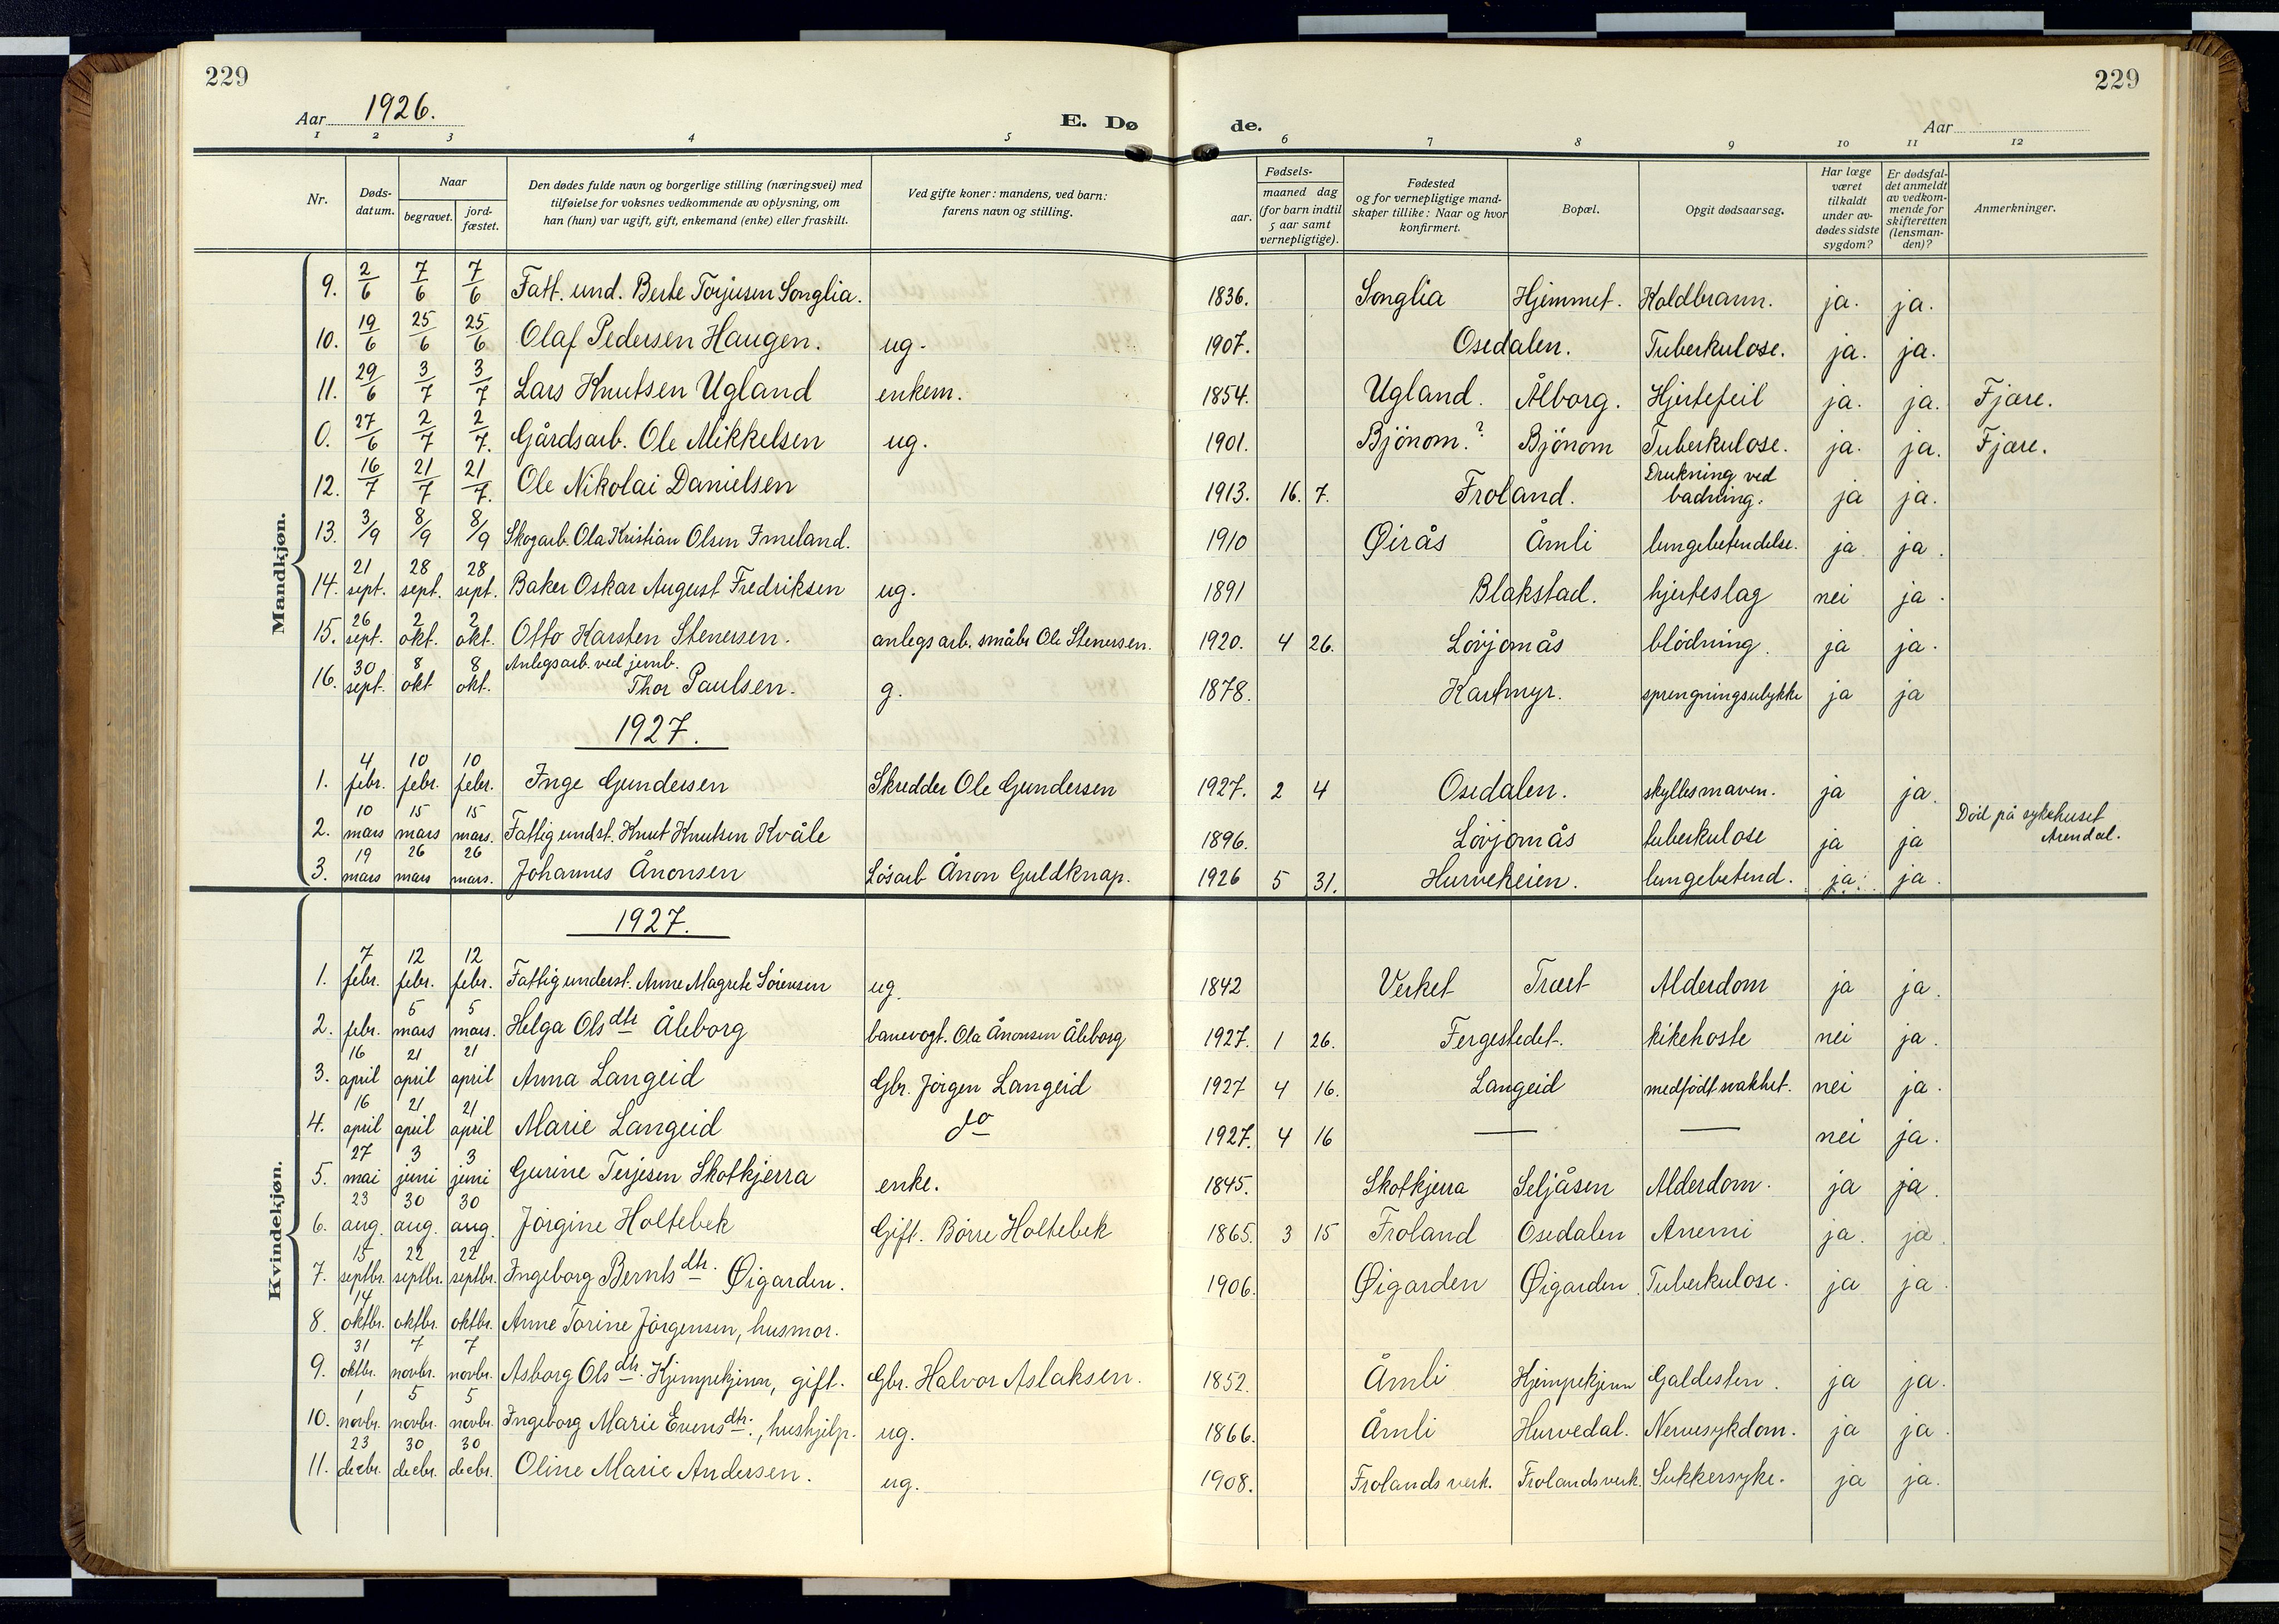 229
229
Aar 1926.
E. Dø
de.
Aar
1 2 3 4 5 6 7 8 9 10 11 12
Nr.
Døds-datum.
Naar
begravet.
jord-fæstet.
Den dødes fulde navn og borgerlige stilling (næringsvei) med
tilføielse for voksnes vedkommende av oplysning, om
han (hun) var ugift, gift, enkemand (enke) eller fraskilt.
Ved gifte koner: mandens, ved barn:
farens navn og stilling.
Fødsels-
aar.
maaned dag
(for barn indtil
5 aar samt
vernepligtige).
Fødested
og for vernepligtige mand-
skaper tillike: Naar og hvor
konfirmert.
Bopæl.
Opgit dødsaarsag.
Har læge
været
tilkaldt
under av-
dødes sidste
sygdom?
Er dødsfal-
det anmeldt
av vedkom-
mende for
skifteretten
(lensman-
den)?
Anmerkninger.
Mandkjøn.
9. 2/6 7/6 7/6 Fatt. und. Berte Torjusen Songlia. 1836. Songlia Hjemmet. Koldbrann. ja. ja.
10. 19/6 25/6 25/6 Olaf Pedersen Haugen. ug. 1907. Osedalen. Tuberkulose. ja. ja.
11. 29/6 3/7 3/7 Lars Knutsen Ugland enkem. 1854. Ugland. Ålborg. Hjertefeil ja. ja. Fjære.
0. 27/6 2/7 2/7. Gårdsarb. Ole Mikkelsen ug. 1901. Bjönom.? Bjönom Tuberkulose. ja. ja. Fjære.
12. 16/7 21/7 21/7. Ole Nikolai Danielsen 1913. 16. 7. Froland. Drukning ved badning. ja ja.
13. 3/9 8/9 8/9 Skogarb. Ola Kristian Olsen Imeland. 1910 Øirås Åmli lungebetendelse. ja ja.
14. 21 sept. 28 sept. 28 sept. Baker Oskar August Fredriksen ug. 1891 Blakstad. hjerteslag nei ja.
15. 26 sept. 2 okt. 2 okt. Otto Karsten Stenersen. anlegsarb. småbr Ole Stenersen. 1920. 4 26. Lövjomås blödning. ja ja.
16. 30 sept. 8 okt 8 okt. Anlegsarb. ved jernb. Thor Paulsen. g. 1878. Kartmyr. sprengningsulykke ja ja
1927.
1. 4 febr. 10 febr. 10 febr. Inge Gundersen Skredder Ole Gundersen 1927. 2 4 Osedalen. skyllesmaven. ja ja.
2. 10 mars 15 mars 15 mars. Fattigundst. Knut Knutsen Kvåle 1896. Lövjomås tuberkulose ja ja Död på sykehuset Arendal.
3. 19 mars 26 mars 26 mars. Johannes Ånonsen Lösarb Ånon Guldknap. 1926 5 31. Hurveheien. lungebetend. ja. ja.
Kvindekjøn.
1927.
1. 7 febr. 12 febr. 12 febr. Fattigunderst. Anne Magrete Sörensen ug. 1842 Verket Træet Alderdom ja ja.
2. febr. 5 mars 5 mars. Helga Olsdtr Åleborg banevogt. Ola Ånonsen Åleborg 1927. 1 26. Fergestedet. kikehoste nei ja.
3. 16 april 21 april 21 april Anna Langeid Gbr. Jörgen Langeid 1927 4 16. Langeid medfödt svakhet. nei ja.
4. 16 april 21 april 21 april Marie Langeid do 1927. 4 16 — — nei ja.
5. 27 mai 3 juni 3 juni Gurine Terjesen Skotkjerra enke. 1845. Skotkjerra Seljåsen Alderdom. ja ja.
6. 23 aug. 30 aug. 30 aug. Jörgine Holtebek Gift. Börre Holtebek 1865. 3 15 Froland Osedalen Anemi ja. ja.
7. 15 septbr. 22 septbr. 22 septbr. Ingeborg Berntsdtr. Øigarden. 1906. Øigarden Øigarden Tuberkulose. ja ja.
8. 14 oktbr. oktbr. oktbr. Anne Torine Jörgensen, husmor.
9. 31 oktbr. 7 novbr. 7 novbr. Asborg Olsdtr. Kjempekjenn, gift. Gbr. Halvor Aslaksen. 1852. Åmli Kjempekjenn Galdesten. ja ja.
10. 1 novbr. 5 novbr. 5 novbr. Ingeborg Marie Evensdtr., hushjelp. ug. 1866. Åmli Hurvedal. Nervesykdom. ja ja.
11. 23 decbr. 30 decbr. 30 decbr. Oline Marie Andersen. ug. 1908. Frolands verk. Frolandsverk. Sukkersyke. ja ja.